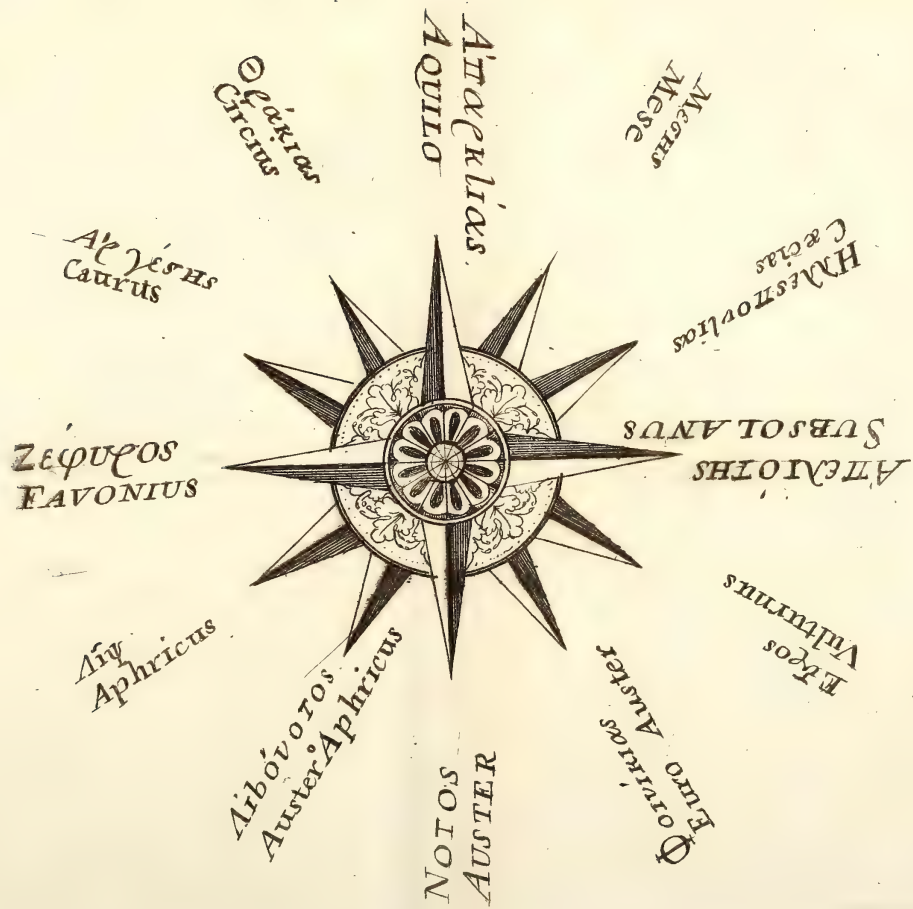 Ἀπαρκlίας.
AQUILO
Μεσης
Mese
Ηλεσπονlίας
Cæcias
Ἀπελιότης
SUBSOLANUS
Εὖρος
Vulturnus
Φοινίκιας
Euro Auster
NOTOS
AUSTER
Λιbόνοτος
Auster Aphricus
Λίψ
Aphricus
Ζέφυρος
FAVONIUS
Ἀργέσης
Caurus
Θράκιας
Circius